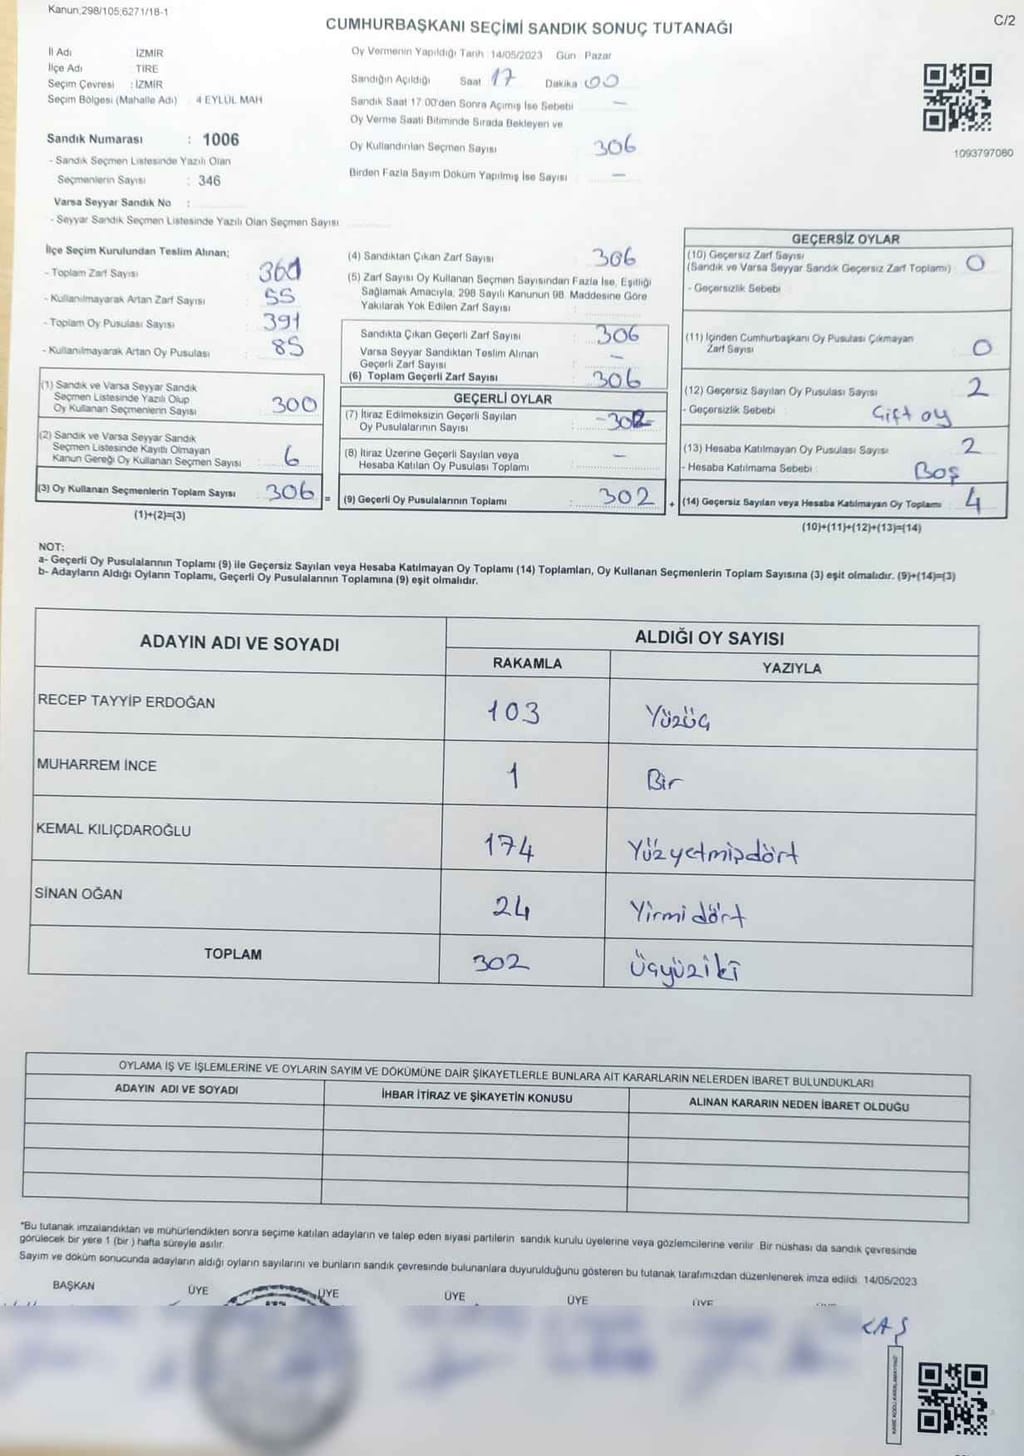 Kanun;298/105;6271/18-1
C/2
CUMHURBAŞKANI SEÇİMİ SANDIK SONUÇ TUTANAĞI
İl Adı İZMİR
İlçe Adı TİRE
Seçim Çevresi : İZMİR
Seçim Bölgesi (Mahalle Adı) 4 EYLÜL MAH
Sandık Numarası : 1006
- Sandık Seçmen Listesinde Yazılı Olan
Seçmenlerin Sayısı : 346
Varsa Seyyar Sandık No :
- Seyyar Sandık Seçmen Listesinde Yazılı Olan Seçmen Sayısı
Oy Vermenin Yapıldığı Tarih 14/05/2023 Gün Pazar
Sandığın Açıldığı Saat 17 Dakika 00
Sandık Saat 17.00'den Sonra Açımış İse Sebebi —
Oy Verme Saati Bitiminde Sırada Bekleyen ve
Oy Kullandırılan Seçmen Sayısı 306
Birden Fazla Sayım Döküm Yapılmış İse Sayısı —
1093797060
İlçe Seçim Kurulundan Teslim Alınan;
- Toplam Zarf Sayısı 361
- Kullanılmayarak Artan Zarf Sayısı 55
- Toplam Oy Pusulası Sayısı 391
- Kullanılmayarak Artan Oy Pusulası 85
(1) Sandık ve Varsa Seyyar Sandık
Seçmen Listesinde Yazılı Olup
Oy Kullanan Seçmenlerin Sayısı 300
(2) Sandık ve Varsa Seyyar Sandık
Seçmen Listesinde Kayıtlı Olmayan
Kanun Gereği Oy Kullanan Seçmen Sayısı 6
(3) Oy Kullanan Seçmenlerin Toplam Sayısı 306 =
(1)+(2)=(3)
(4) Sandıktan Çıkan Zarf Sayısı 306
(5) Zarf Sayısı Oy Kullanan Seçmen Sayısından Fazla İse, Eşitliği
Sağlamak Amacıyla, 298 Sayılı Kanunun 98. Maddesine Göre
Yakılarak Yok Edilen Zarf Sayısı
Sandıkta Çıkan Geçerli Zarf Sayısı 306
Varsa Seyyar Sandıktan Teslim Alınan
Geçerli Zarf Sayısı —
(6) Toplam Geçerli Zarf Sayısı 306
GEÇERLİ OYLAR
(7) İtiraz Edilmeksizin Geçerli Sayılan
Oy Pusulalarının Sayısı -302-
(8) İtiraz Üzerine Geçerli Sayılan veya
Hesaba Katılan Oy Pusulası Toplamı —
(9) Geçerli Oy Pusulalarının Toplamı : 302 +
GEÇERSİZ OYLAR
(10) Geçersiz Zarf Sayısı
(Sandık ve Varsa Seyyar Sandık Geçersiz Zarf Toplamı) 0
- Geçersizlik Sebebi :
(11) İçinden Cumhurbaşkanı Oy Pusulası Çıkmayan
Zarf Sayısı 0
(12) Geçersiz Sayılan Oy Pusulası Sayısı 2
- Geçersizlik Sebebi : Çift oy
(13) Hesaba Katılmayan Oy Pusulası Sayısı 2
- Hesaba Katılmama Sebebi Boş
(14) Geçersiz Sayılan veya Hesaba Katılmayan Oy Toplamı 4
(10)+(11)+(12)+(13)=(14)
NOT:
a- Geçerli Oy Pusulalarının Toplamı (9) ile Geçersiz Sayılan veya Hesaba Katılmayan Oy Toplamı (14) Toplamları, Oy Kullanan Seçmenlerin Toplam Sayısına (3) eşit olmalıdır. (9)+(14)=(3)
b- Adayların Aldığı Oyların Toplamı, Geçerli Oy Pusulalarının Toplamına (9) eşit olmalıdır.
ADAYIN ADI VE SOYADI ALDIĞI OY SAYISI
RAKAMLA YAZIYLA
RECEP TAYYİP ERDOĞAN 103 Yüzüç
MUHARREM İNCE 1 Bir
KEMAL KILIÇDAROĞLU 174 Yüzyetmişdört
SİNAN OĞAN 24 Yirmi dört
TOPLAM 302 Üçyüziki
OYLAMA İŞ VE İŞLEMLERİNE VE OYLARIN SAYIM VE DÖKÜMÜNE DAİR ŞİKAYETLERLE BUNLARA AİT KARARLARIN NELERDEN İBARET BULUNDUKLARI
ADAYIN ADI VE SOYADI İHBAR İTİRAZ VE ŞİKAYETİN KONUSU ALINAN KARARIN NEDEN İBARET OLDUĞU
*Bu tutanak imzalandıktan ve mühürlendikten sonra seçime katılan adayların ve talep eden siyasi partilerin sandık kurulu üyelerine veya gözlemcilerine verilir. Bir nüshası da sandık çevresinde
görülecek bir yere 1 (bir ) hafta süreyle asılır.
Sayım ve döküm sonucunda adayların aldığı oyların sayılarını ve bunların sandık çevresinde bulunanlara duyurulduğunu gösteren bu tutanak tarafımızdan düzenlenerek imza edildi. 14/05/2023
BAŞKAN ÜYE ÜYE ÜYE ÜYE ÜYE